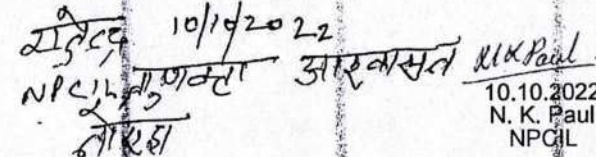 राजेन्द्र 10/10/2022
NPCIL, गुणवत्ता आश्वासन
N K Paul
10.10.2022
N. K. Paul
NPCIL